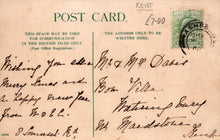 KENT
£7.00
POST CARD.
THIS SPACE MAY BE USED
FOR COMMUNICATION
IN THE BRITISH ISLES ONLY.
(Post Office Regulation).
THE ADDRESS ONLY TO BE
WRITTEN HERE.
Wishing you all a
Merry Xmas and
a happy new year
from
Mr & Mrs Davis
Rose Villa
Watering bury
Nr Maidstone